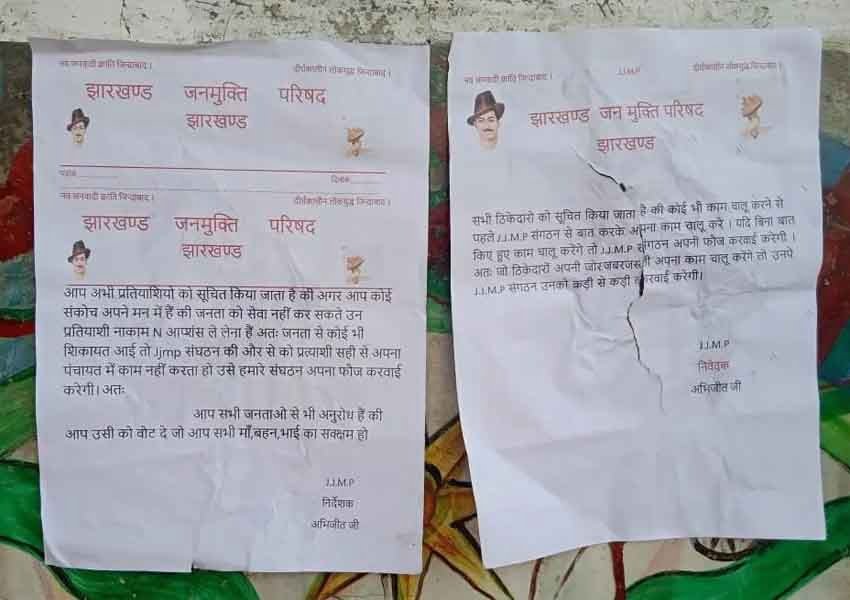 नव जनवादी क्रांति जिन्दाबाद। दीर्घकालीन लोकयुद्ध जिन्दाबाद।
झारखण्ड जनमुक्ति परिषद
झारखण्ड
पत्रांक............ दिनांक............
नव जनवादी क्रांति जिन्दाबाद। दीर्घकालीन लोकयुद्ध जिन्दाबाद।
झारखण्ड जनमुक्ति परिषद
झारखण्ड
आप अभी प्रतियाशियो को सूचित किया जाता है की अगर आप कोई
संकोच अपने मन में हैं की जनता को सेवा नहीं कर सकते उन
प्रतियाशी नाकाम N आप्शंस ले लेना हैं अतः जनता से कोई भी
शिकायत आई तो Jjmp संघठन की और से को प्रत्याशी सही से अपना
पंचायत में काम नहीं करता हो उसे हमारे संघठन अपना फौज करवाई
करेगी। अतः
आप सभी जनताओ से भी अनुरोध हैं की
आप उसी को वोट दे जो आप सभी माँ,बहन,भाई का सक्क्षम हो
J.J.M.P
निर्देशक
अभिजीत जी
नव जनवादी क्रांति जिन्दाबाद। J.J.M.P दीर्घकालीन लोकयुद्ध जिन्दाबाद।
झारखण्ड जन मुक्ति परिषद
झारखण्ड
सभी ठिकेदारो को सूचित किया जाता है की कोई भी काम चालू करने से
पहले J.J.M.P संगठन से बात करके अपना काम चालू करे । यदि बिना बात
किए हुए काम चालू करेगे तो J.J.M.P संगठन अपनी फौज करवाई करेगी ।
अतः जो ठिकेदारो अपनी जोरजबरजस्ती अपना काम चालू करेगे तो उनपे
J.J.M.P संगठन उनको कड़ी से कड़ी कारवाई करेगी।
J.J.M.P
निवेदक
अभिजीत जी